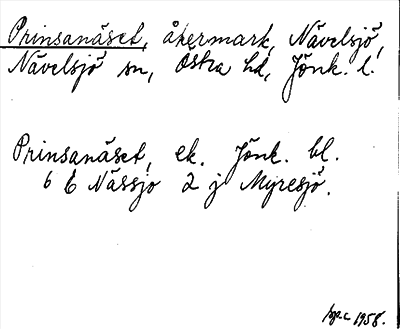 Prinsanäset, åkermark, Nävelsjö,
Nävelsjö sn, Östra hd, Jönk. l.
Prinsanäset, ek. Jönk. bl.
6 E Nässjö 2 j Myresjö.
1958.